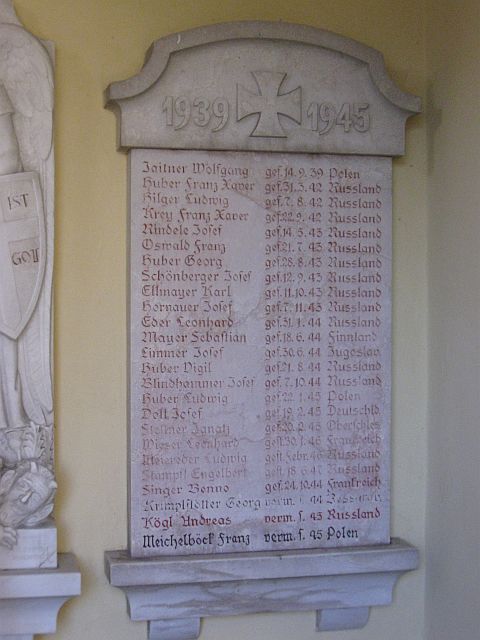 IST
GOTT
1939 1945
Zaitner Wolfgang gef. 14. 9. 39 Polen
Huber Franz Xaver gef. 31. 3. 42 Russland
Hilger Ludwig gef. 7. 8. 42 Russland
Krey Franz Xaver gef. 22. 9. 42 Russland
Rindele Josef gef. 14. 5. 43 Russland
Oswald Franz gef. 21. 7. 43 Russland
Huber Georg gef. 28. 8. 43 Russland
Schönberger Josef gef. 12. 9. 43 Russland
Ellmayer Karl gef. 11. 10. 43 Russland
Hornauer Josef gef. 7. 11. 43 Russland
Eder Leonhard gef. 31. 1. 44 Russland
Mayer Sebastian gef. 18. 6. 44 Finnland
Limmer Josef gef. 30. 6. 44 Jugoslav.
Huber Vigil gef. 21. 8. 44 Russland
Blindhammer Josef gef. 7. 10. 44 Russland
Huber Ludwig gef. 22. 1. 45 Polen
Doll Josef gef. 19. 2. 45 Deutschld.
Stellner Ignatz gef. 20. 2. 45 Oberschles.
Wieser Leonhard gest. 30. 1. 46 Frankreich
Ludwig gest. Febr. 46 Russland
Stampfl Engelbert gest. 18. 6. 47 Russland
Singer Benno gef. 24. 10. 44 Frankreich
Krimpfstötter Georg verm. s. 44
Kögl Andreas verm. s. 45 Russland
Meichelböck Franz verm. s. 45 Polen